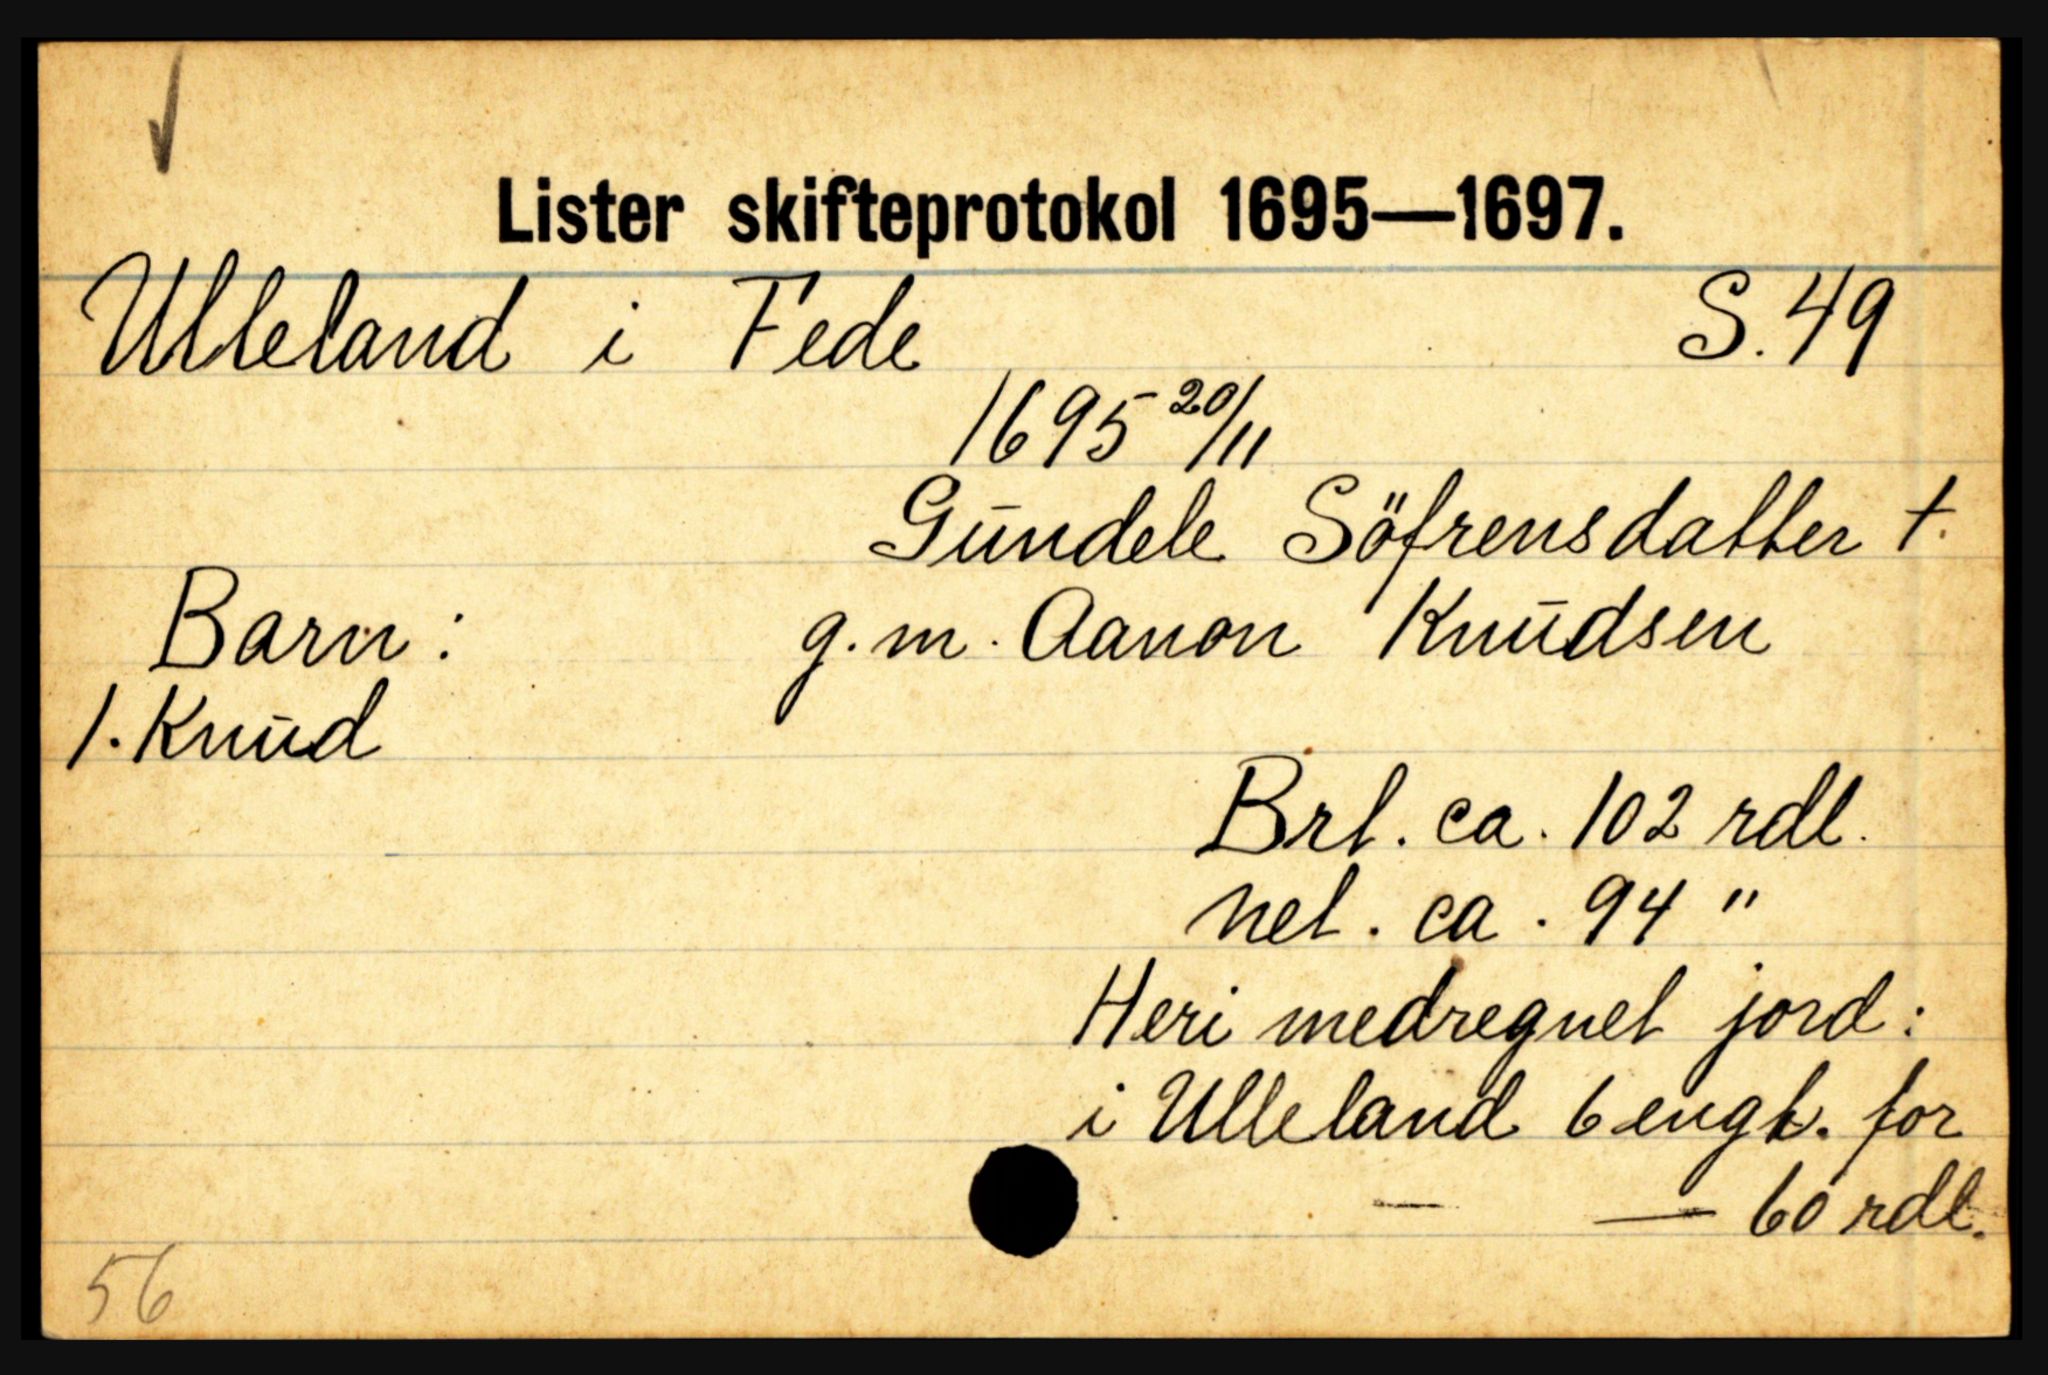 Lister skifteprotokol 1695—1697.
Ulleland i Fede S. 49
1695 20/11
Gundele Söfrensdatter †.
Barn: g. m. Aanon Knudsen
1. Knud
Brt. ca. 102 rdl.
net. ca. 94 "
Heri medregnet jord:
i Ulleland 6 engh. for
— — 60 rdl.
56